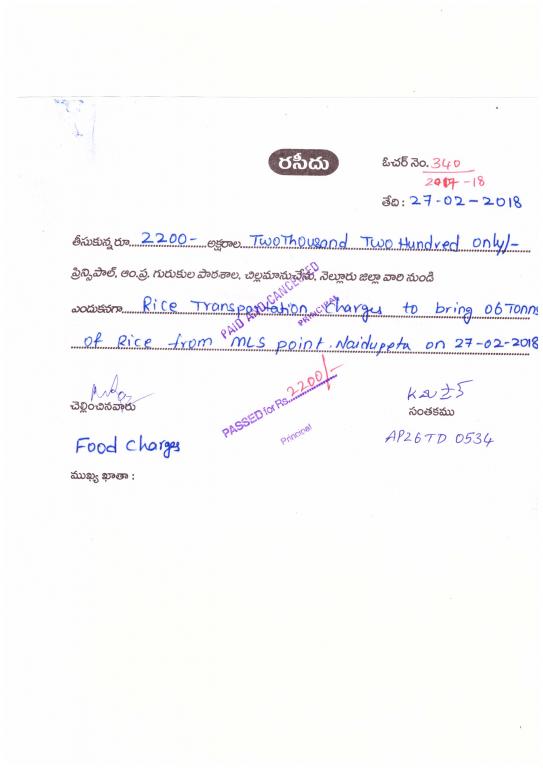 రసీదు
ఓచర్ నెం. 340
2017-18
తేది : 27-02-2018
తీసుకున్న రూ 2200- అక్షరాల Two Thousand Two Hundred only/-
ప్రిన్సిపాల్, ఆం.ప్ర. గురుకుల పాఠశాల, చిల్లమానుచేను, నెల్లూరు జిల్లా వారి నుండి
ఎందుకనగా Rice Transportation Charges to bring 06 Tonns
of Rice from MLS point. Naidupeta on 27-02-2018
PAID AND CANCELLED
PRINCIPAL
PASSED for Rs. 2200/-
Principal
చెల్లించినవారు
సంతకము
Food Charges
AP26TD 0534
ముఖ్య ఖాతా :